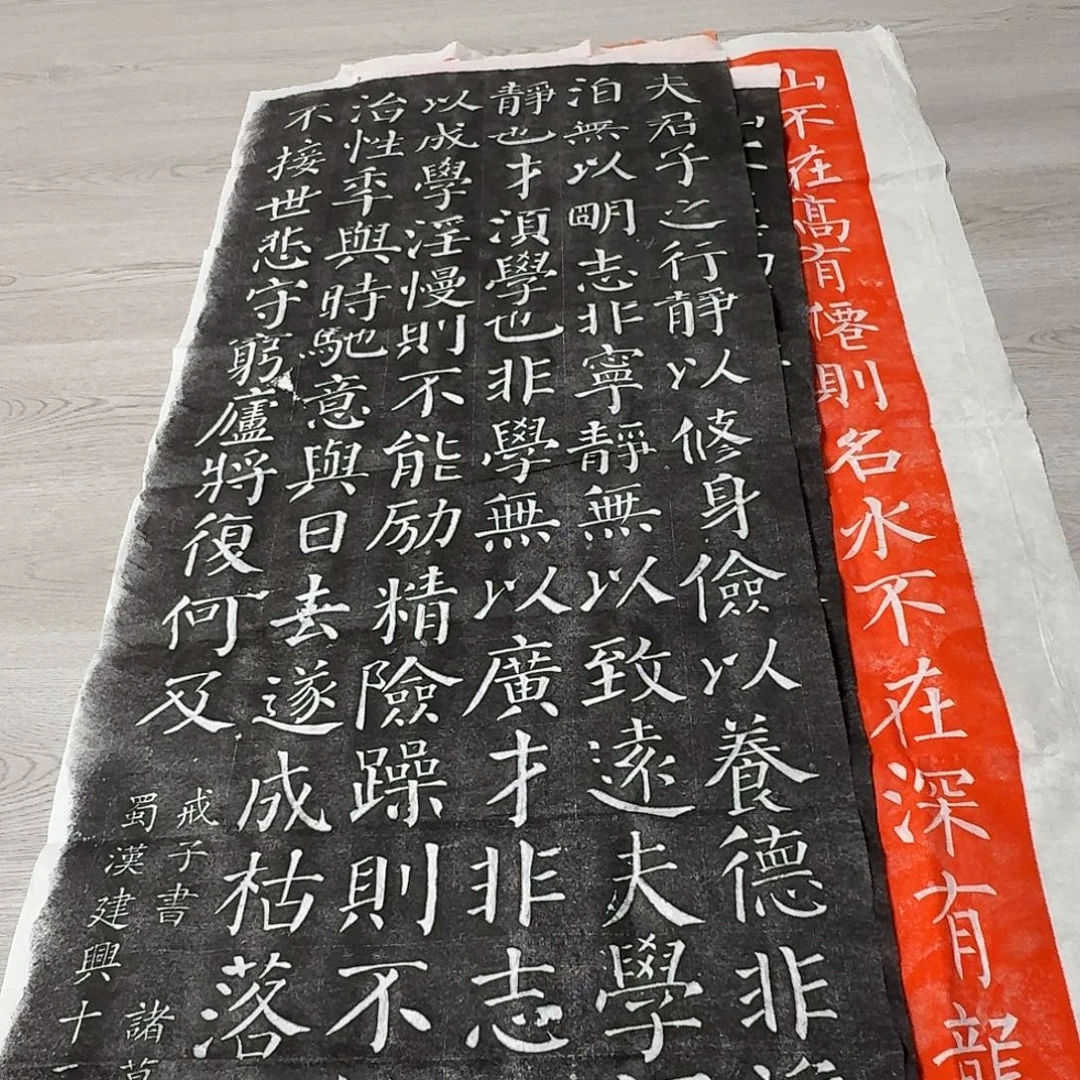 山不在髙有僊則名水不在深有龍
夫君子之行靜以修身儉以養德非
泊無以明志非寧靜無以致遠夫學
靜也才須學也非學無以廣才非志
以成學淫慢則不能励精險躁則不
治性年與時馳意與日去遂成枯落
不接世悲守窮廬將復何及
戒子書 諸
蜀漢建興十